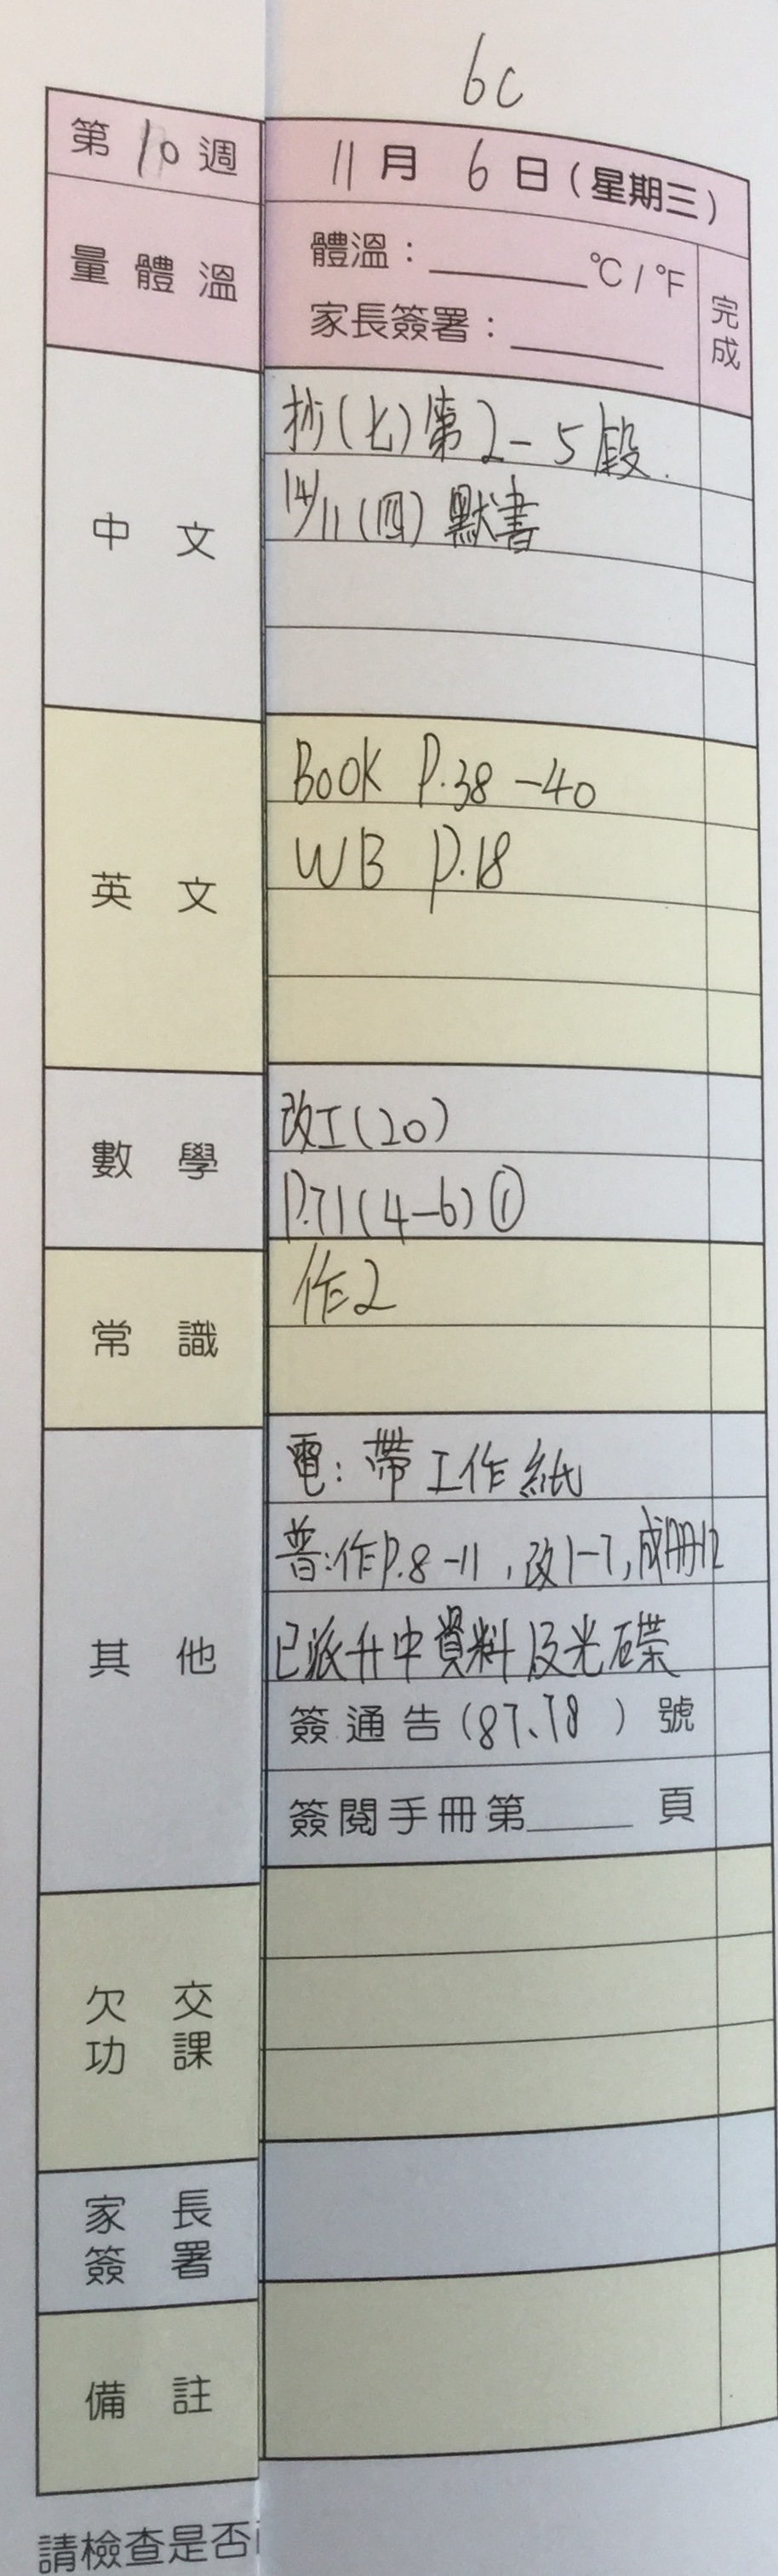 6C
第 10 週
11 月 6 日 ( 星期三 )
量 體 溫
體溫 : ______ °C / °F
家長簽署 : ______
完成
中 文
抄(七)第2-5段.
14/11(四) 默書
英 文
BOOK P.38-40
WB P.18
數 學
改工(20)
P.71(4-6)①
常 識
作2
其 他
電: 帶工作紙
普:作P.8-11,改1-7,成冊12
已派升中資料及光碟
簽通告(87、78) 號
簽閱手冊第______頁
欠 交
功 課
家 長
簽 署
備 註
請檢查是否